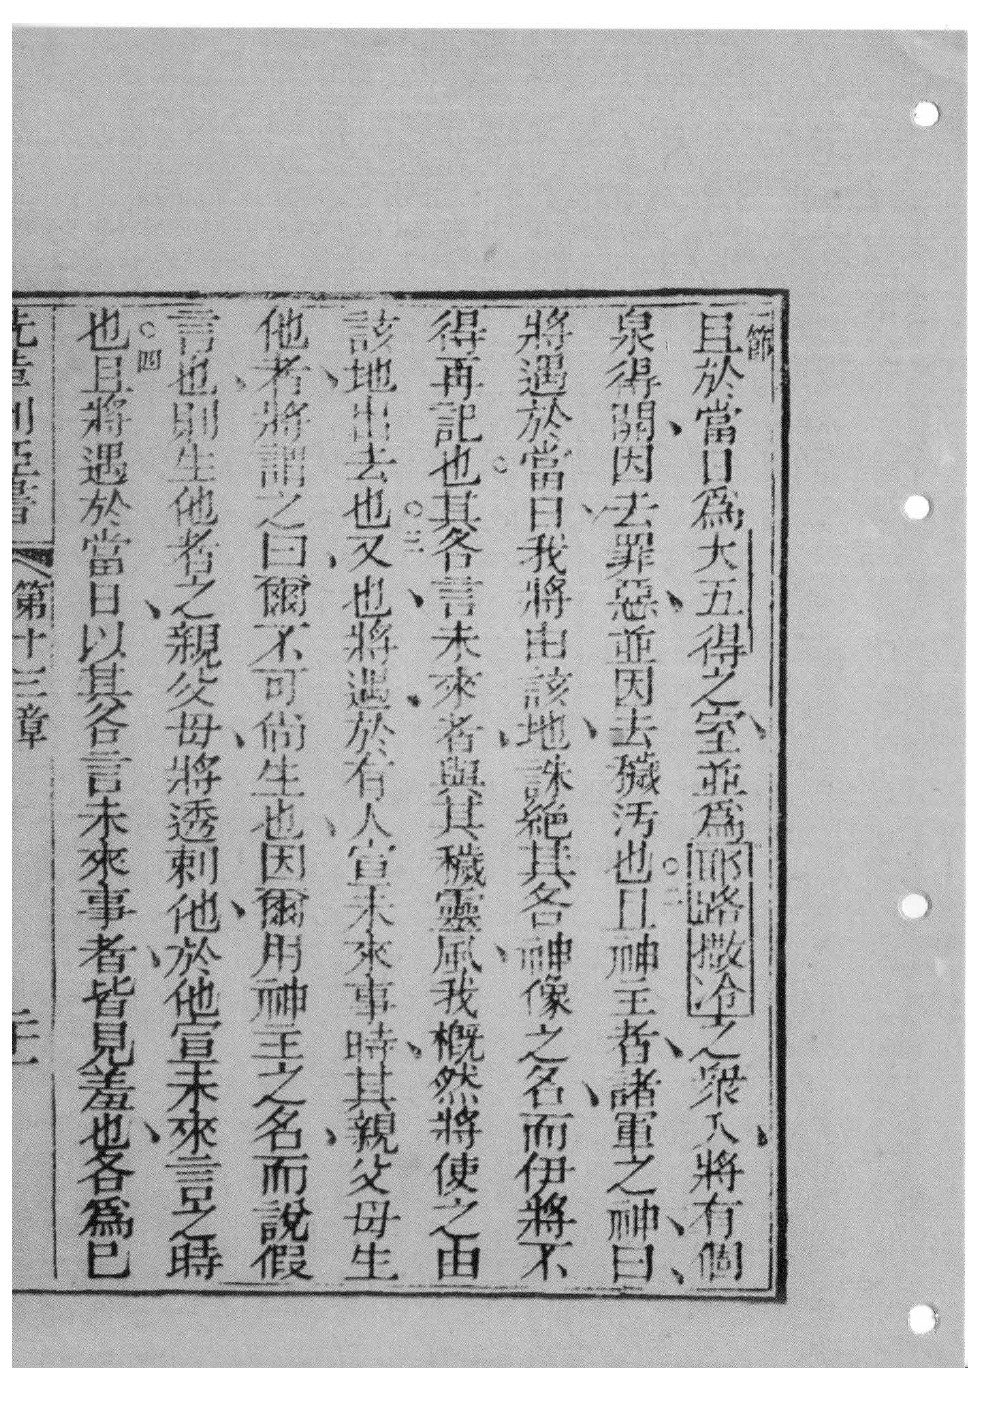 一節
且於當日爲大五得之室並爲耶路撒冷之衆人將有個
泉得開因去罪惡並因去穢汚也○二且神主者諸軍之神曰
將遇於當日我將由該地誅絕其各神像之名而伊將不
得再記也○其各言未來者與其穢靈風我槪然將使之由
該地出去也○三又也將遇於有人宣未來事時其親父母生
他者將謂之曰爾不可尙生也因爾用神主之名而說假
言也則生他者之親父母將透刺他於他宣未來言之時
○四也且將遇於當日以其各言未來事者皆見羞也各爲已
先知撒加利亞書 第十三章